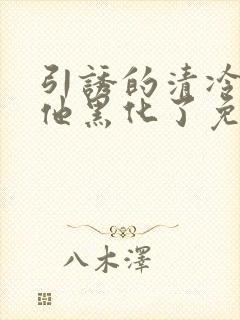 引誘的清冷
他黑化了免
八木澤